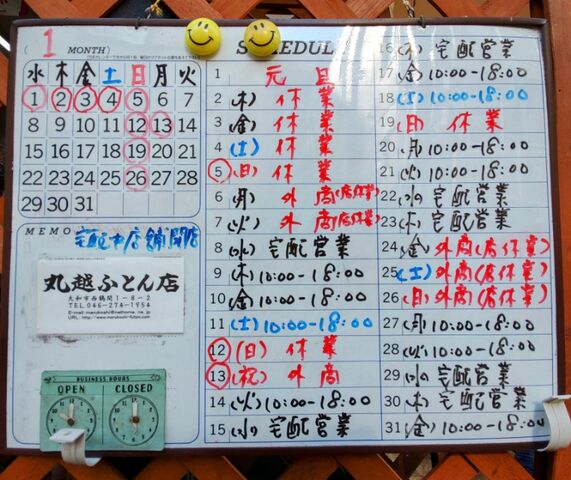 1 MONTH
水 木 金 土 日 月 火
1 2 3 4 5 6 7
8 9 10 11 12 13 14
15 16 17 18 19 20 21
22 23 24 25 26 27 28
29 30 31
MEMO 宅配中店舗閉店
丸越ふとん店
大和市西鶴間1-8-2
TEL 046-274-1954
BUSINESS HOURS
OPEN CLOSED
SCHEDULE
1 元旦
2 (木) 休業
3 (金) 休業
4 (土) 休業
5 (日) 休業
6 (月) 外商(店休業)
7 (火) 外商(店休業)
8 (水) 宅配営業
9 (木) 10:00-18:00
10 (金) 10:00-18:00
11 (土) 10:00-18:00
12 (日) 休業
13 (祝) 外商
14 (火) 10:00-18:00
15 (水) 宅配営業
16 (木) 宅配営業
17 (金) 10:00-18:00
18 (土) 10:00-18:00
19 (日) 休業
20 (月) 10:00-18:00
21 (火) 10:00-18:00
22 (水) 宅配営業
23 (木) 宅配営業
24 (金) 外商(店休業)
25 (土) 外商(店休業)
26 (日) 外商(店休業)
27 (月) 10:00-18:00
28 (火) 10:00-18:00
29 (水) 宅配営業
30 (木) 宅配営業
31 (金) 10:00-18:00